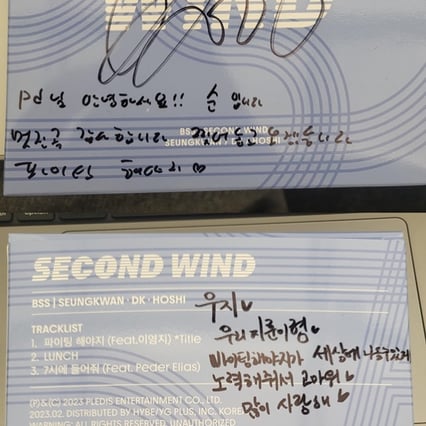 WIND
Pd님 안녕하세요!! 순 입니다
멋진곡 감사합니다
BSS | SECOND WIND
SEUNGKWAN / DK · HOSHI
파이팅 해야지 ♡
option
SECOND WIND
BSS | SEUNGKWAN · DK · HOSHI
우지♥
TRACKLIST
우리 지훈이형♥
1. 파이팅 해야지 (Feat.이영지) *Title
2. LUNCH
3. 7시에 들어줘 (Feat. Peder Elias)
파이팅해야지가 세상에 나올수있게
노력해줘서 고마워♥
많이 사랑해♥
(P)&(C) 2023 PLEDIS ENTERTAINMENT CO., LTD.
2023.02. DISTRIBUTED BY HYBE/YG PLUS, INC. KOREA
WARNING: ALL RIGHTS RESERVED. UNAUTHORIZED